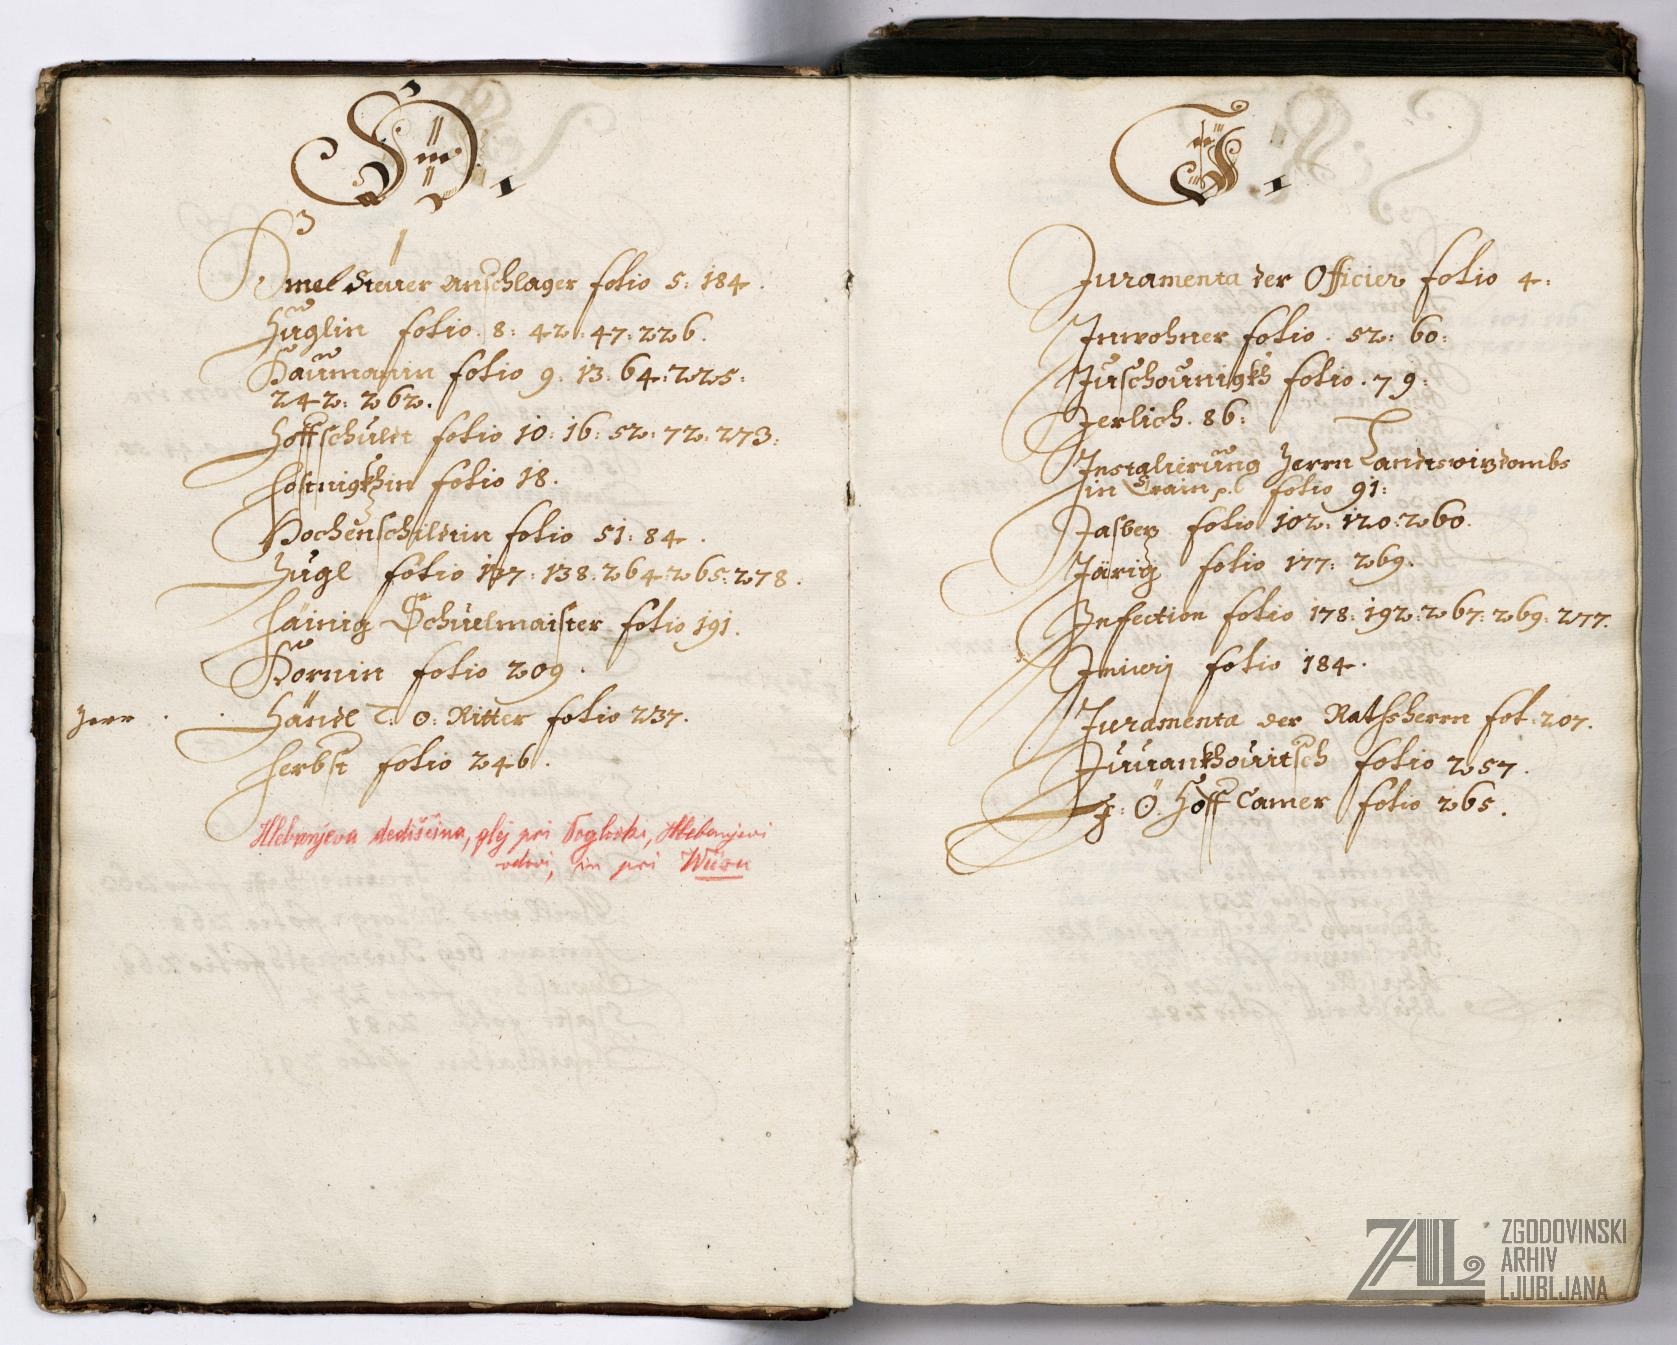 H.
Himel Steuer Anschlager folio 5: 184.
Hüglin folio. 8: 42. 47: 226.
Haümanin folio 9. 13. 64: 225:
242: 262.
Hoffschuldt folio 10: 16: 52: 72: 273:
folio 18.
Hochenschiltin folio 51: 84.
Hügl folio 137: 138: 264: 265: 278.
Häinig Schuelmaister folio 191.
Hörnin folio 209.
Herr Händl T: O: Ritter folio 237.
Herbst folio 246.
Hlebanjeva dediščina, glej pri Hlebanjevi
vdovi, in pri
J.
Juramenta der Officier folio 4:
Inwohner folio. 52: 60:
Juschounigkh folio. 79:
Jerlich. 86:
Installierung Herrn Landtsvizdombs
in Crain folio 91:
folio 102: 120: 260.
Järig folio 177: 269.
Infection folio 178: 192: 267: 269: 277.
folio 184.
Juramenta der Rathsherrn fol: 207.
folio 257.
J: Ö: Hoff Camer folio 265.
ZAL ZGODOVINSKI
ARHIV
LJUBLJANA